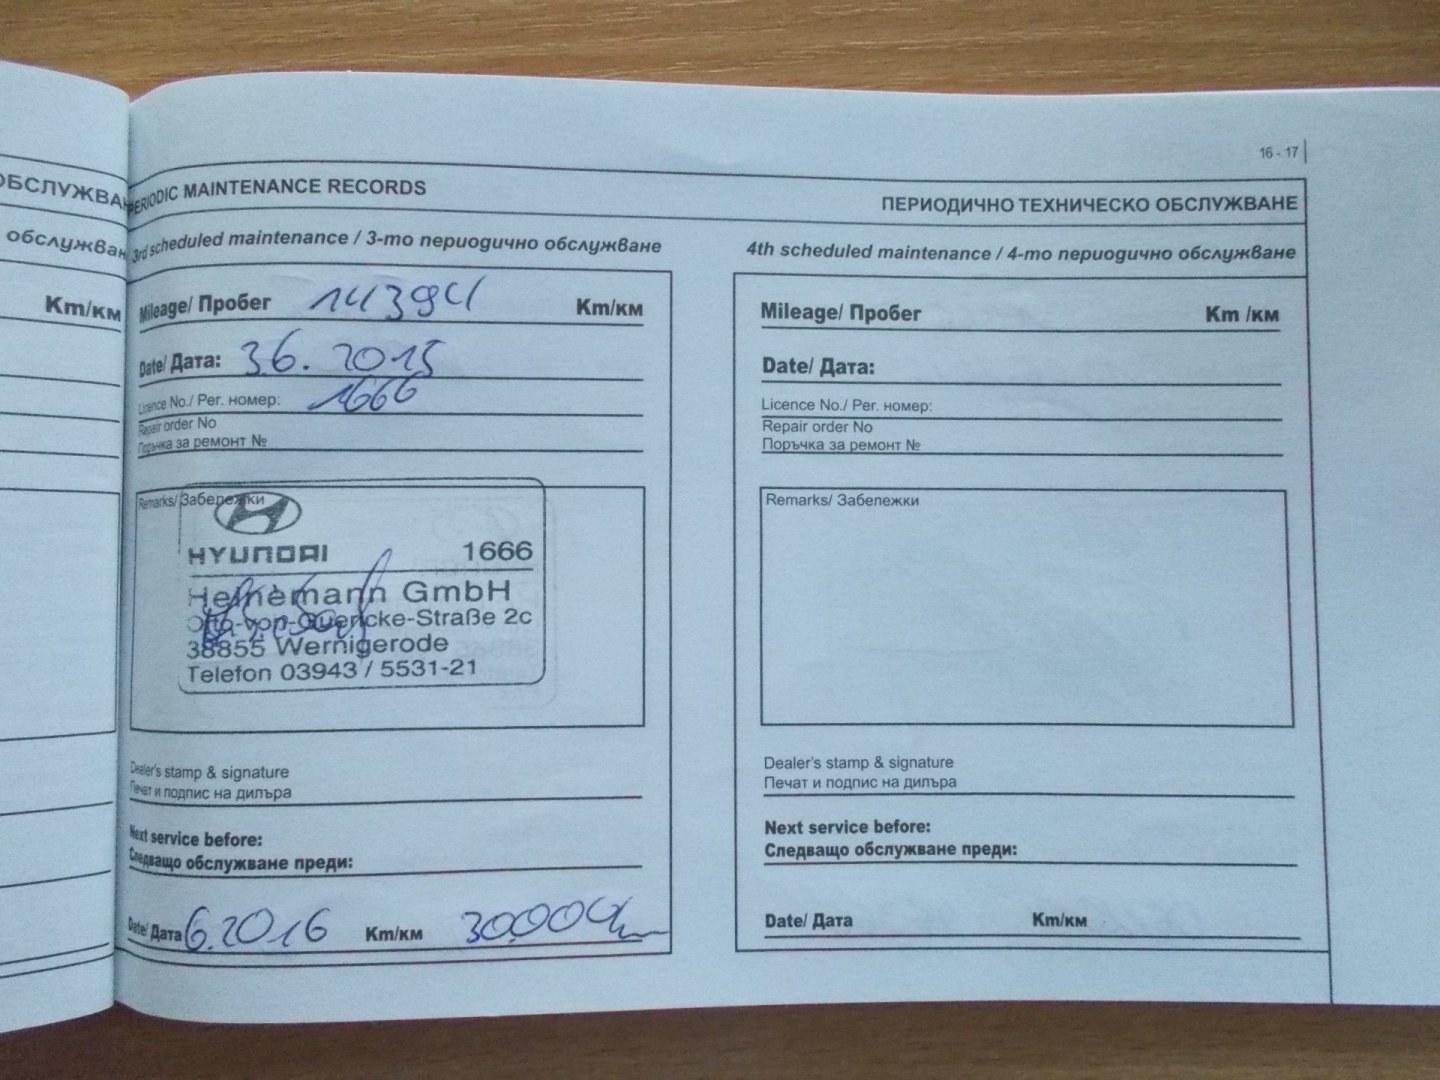 16 - 17
ОБСЛУЖВА
обслужван
Km/км
PERIODIC MAINTENANCE RECORDS
ПЕРИОДИЧНО ТЕХНИЧЕСКО ОБСЛУЖВАНЕ
3rd scheduled maintenance / 3-то периодично обслужване
Mileage/ Пробег 14394 Km/км
Date/ Дата: 3.6. 2015
Licence No./ Рег. номер: 1666
Repair order No
Поръчка за ремонт №
Remarks/ Забележки
HYUNDAI 1666
Heinemann GmbH
Otto-von-Guericke-Straße 2c
38855 Wernigerode
Telefon 03943 / 5531-21
Dealer's stamp & signature
Печат и подпис на дилъра
Next service before:
Следващо обслужване преди:
Date/ Дата 6.2016 Km/км 30.000km
4th scheduled maintenance / 4-то периодично обслужване
Mileage/ Пробег Km /км
Date/ Дата:
Licence No./ Рег. номер:
Repair order No
Поръчка за ремонт №
Remarks/ Забележки
Dealer's stamp & signature
Печат и подпис на дилъра
Next service before:
Следващо обслужване преди:
Date/ Дата Km/км